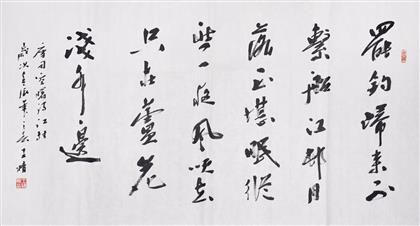 罷釣歸来不
繫船江邨月
落正堪眠縱
然一夜風吹去
只在蘆花
淺水邊
唐司空曙詩江村
歲次